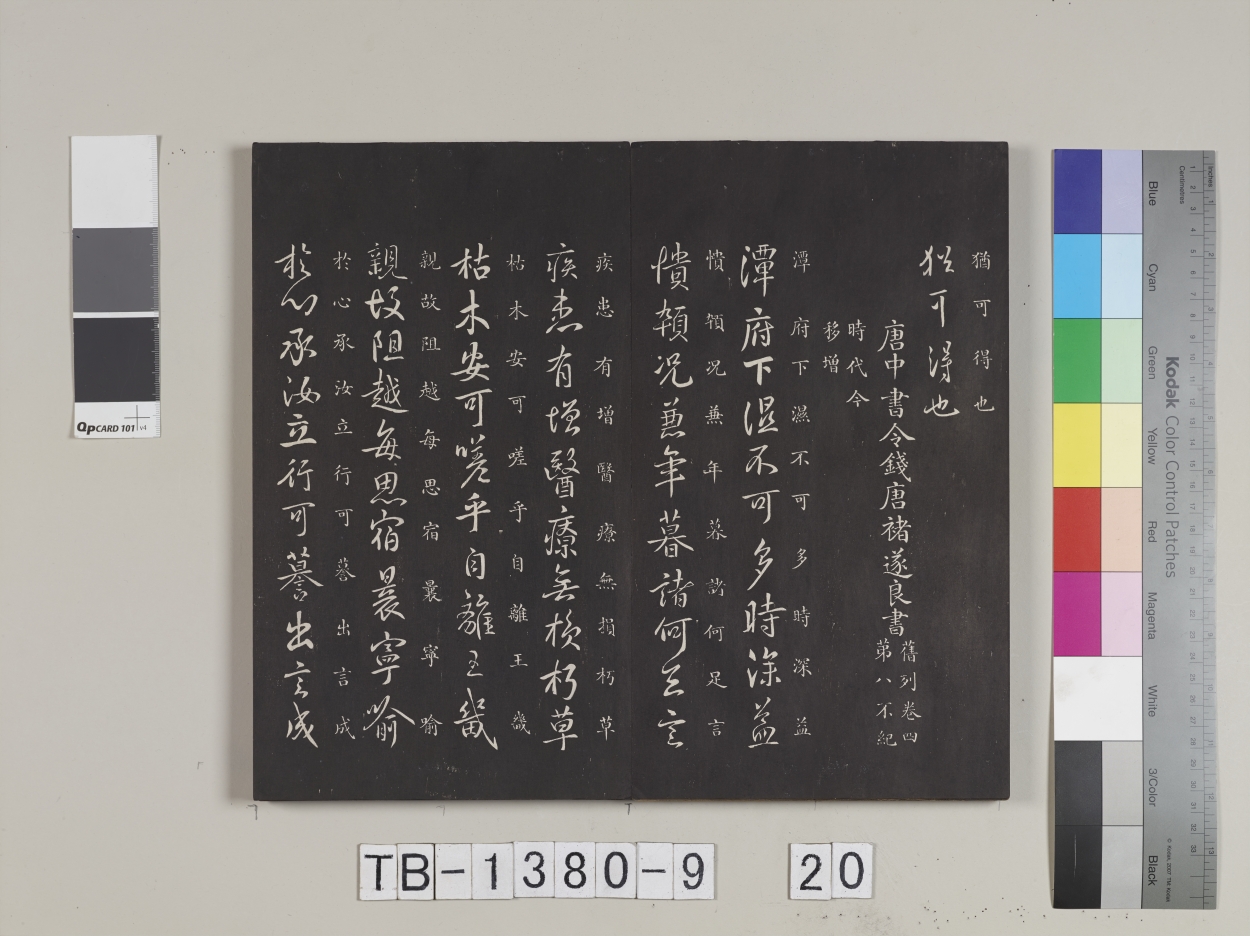 猶可得也
猶可得也
唐中書令錢唐褚遂良書
舊列卷四
第八不紀
時代今
移增
潭府下濕不可多時深益
潭府下濕不可多時深益
憒頓況蕪年暮諸何足言
憒頓況兼年暮諸何足言
疾患有增醫療無損朽草
疾患有增醫療無損朽草
枯木安可嗟乎自離王畿
枯木安可嗟乎自離王畿
親故阻越每思宿曩寧喻
親故阻越每思宿曩寧喻
於心承汝立行可譱出言成
於心承汝立行可譱出言成
QPCARD 101 v4
Kodak Color Control Patches
Blue
Cyan
Green
Yellow
Red
Magenta
White
3/Color
Black
Inches
Centimetres
© Kodak, 2007 TM: Kodak
TB-1380-9 20